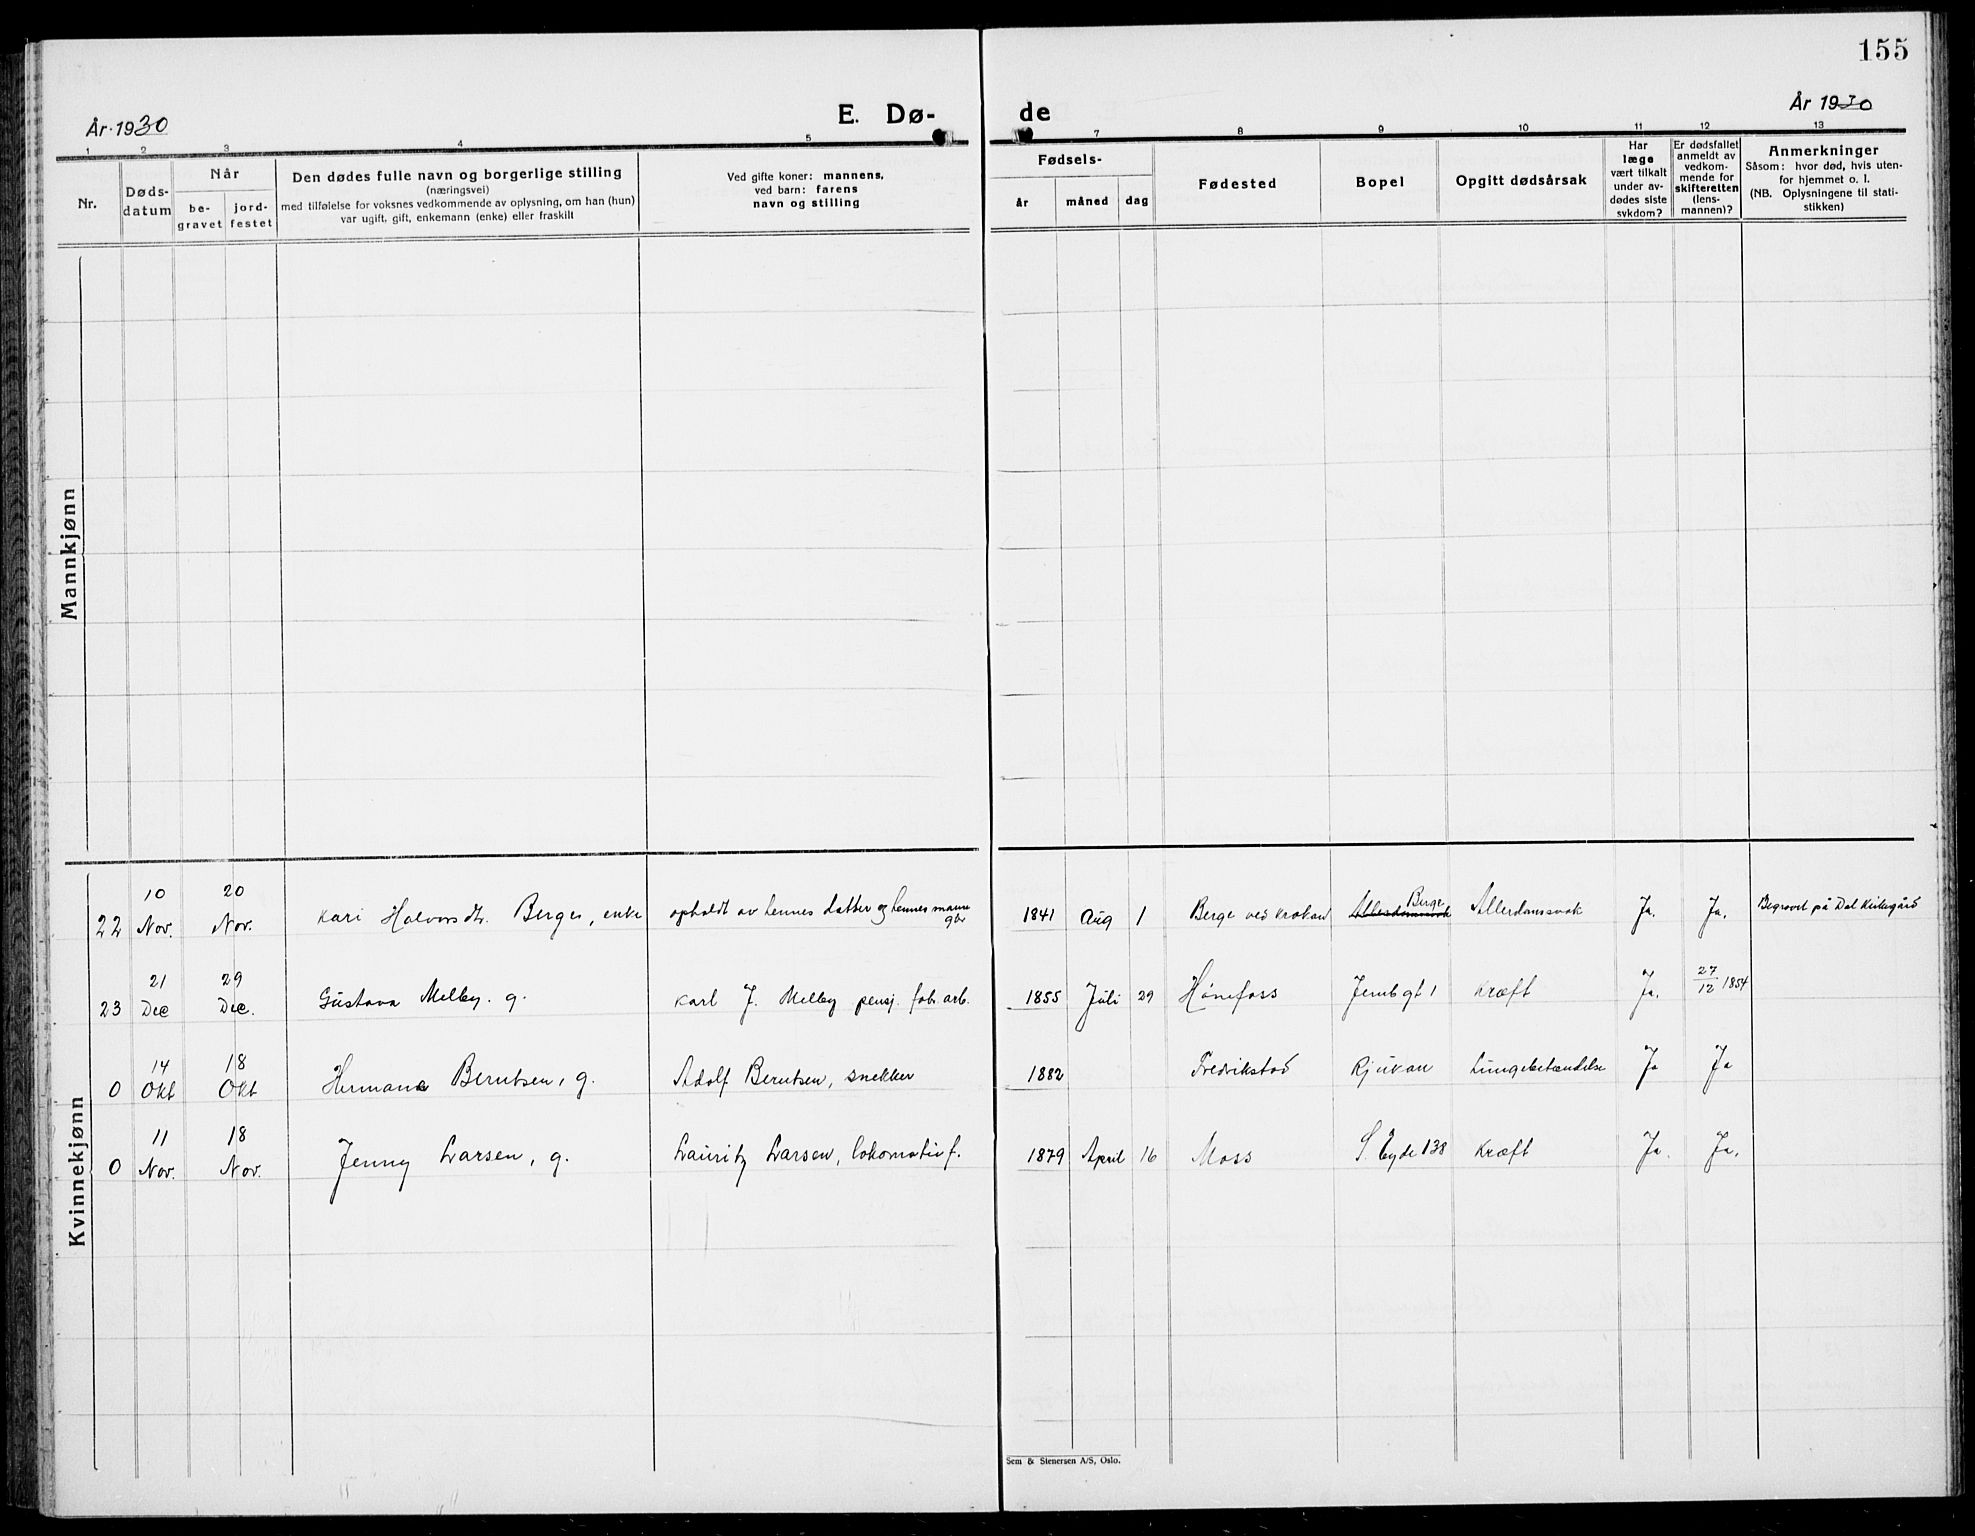 155
År 1930
E. Dø-
de
År 1930
1 2 3 4 5 7 8 9 10 11 12 13
Nr.
Døds-
datum
Når
be-
gravet
jord-
festet
Den dødes fulle navn og borgerlige stilling
(næringsvei)
med tilføielse for voksnes vedkommende av oplysning, om han (hun)
var ugift, gift, enkemann (enke) eller fraskilt
Ved gifte koner: mannens,
ved barn: farens
navn og stilling
Fødsels-
år måned dag
Fødested
Bopel
Opgitt dødsårsak
Har
læge
vært tilkalt
under av-
dødes siste
sykdom?
Er dødsfallet
anmeldt av
vedkom-
mende for
skifteretten
(lens-
mannen)?
Anmerkninger
Såsom: hvor død, hvis uten-
for hjemmet o. l.
(NB. Oplysningene til stati-
stikken)
Mannkjønn
Kvinnekjønn
22 10 Nov. 20 Nov. Kari Halvorsdtr. Berge, enke opholdt av hennes datter og hennes mann 1841 Aug 1 Berge ved Krokan Berge Allerdomssvak Ja. Ja. Begravet på Dal Kirkegård
23 21 Dec 29 Dec. Gustava Melby. g. Karl J. Melby pensj. fabr. arb. 1855 Juli 29 Hønefoss Jernbgt 1 Kræft Ja. 27/12 1854
0 14 Okt 18 Okt Hermana Berntsen, g. Adolf Berntsen, snekker 1882 Fredrikstad Rjukan Lungebetændelse Ja Ja
0 11 Nov. 18 Nov. Jenny Larsen, g. Lauritz Larsen, lokomotivf. 1879 April 16 Moss S. Eyde 138 Kræft Ja. Ja.
Sem & Stenersen A/S, Oslo.